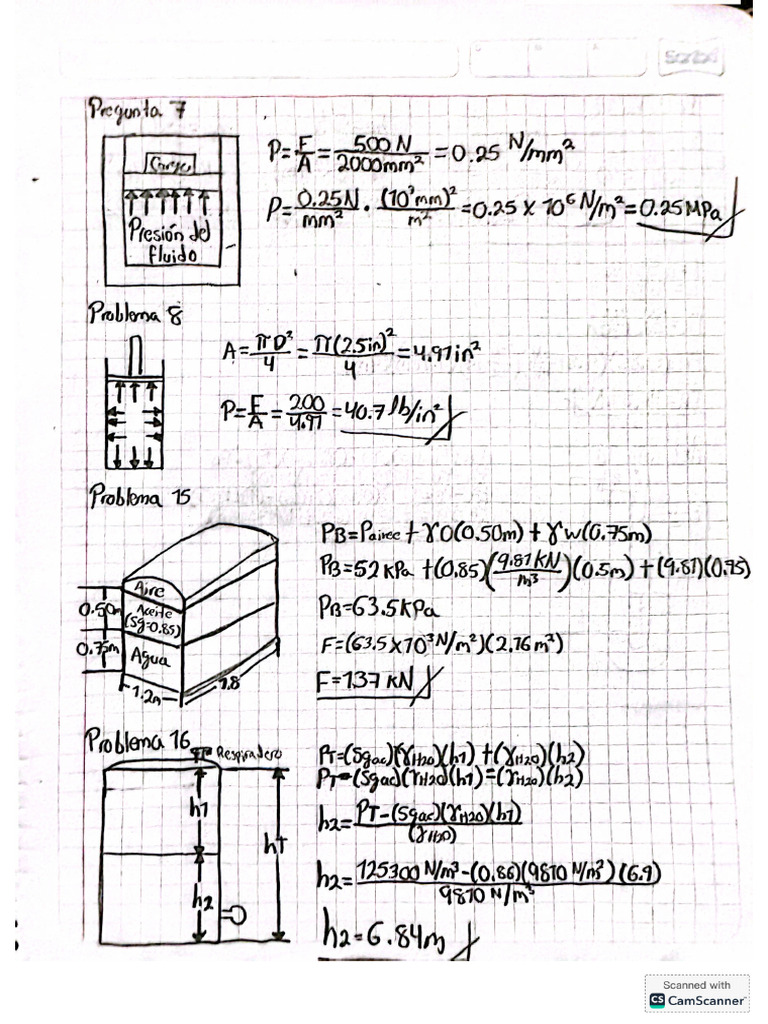 Scribd
Pregunta 7
Carga
Presión del
fluido
P=F/A=500N/2000mm²=0.25 N/mm²
P=0.25N/mm²·(10³mm)²/m²=0.25 x 10⁶ N/m²=0.25MPa
Problema 8
A=πD²/4=π(2.5in)²/4=4.91in²
P=F/A=200/4.91=40.7 lb/in²
Problema 15
Aire
0.50m
Aceite
(Sg=0.85)
0.75m
Agua
1.2m
1.8
PB=Paire+γO(0.50m)+γW(0.75m)
PB=52kPa+(0.85)(9.81KN/m³)(0.5m)+(9.81)(0.75)
PB=63.5kPa
F=(63.5x10³N/m²)(2.16m²)
F=137 KN
Problema 16
Respiradero
h1
h2
hT
PT=(Sgac)(γH2O)(h1)+(γH2O)(h2)
PT-(Sgac)(γH2O)(h1)=(γH2O)(h2)
h2=PT-(Sgac)(γH2O)(h1)/(γH2O)
h2=125300 N/m³-(0.86)(9810 N/m³)(6.9)/9810 N/m³
h2=6.84m
Scanned with
CS CamScanner